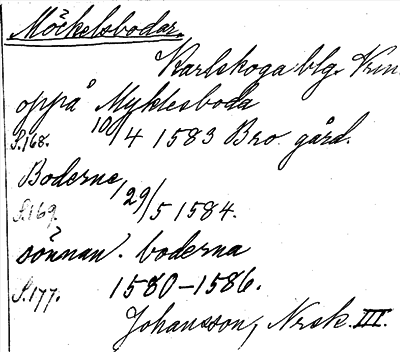 Möckelsbodar.
Karlskoga blg. Krin
oppå Myklesboda
S.168. 10/4 1583 Bro gård.
Boderne, 29/5 1584.
S.169.
sönnan. boderna
S.177. 1580-1586.
Johansson, Nrsk. III.